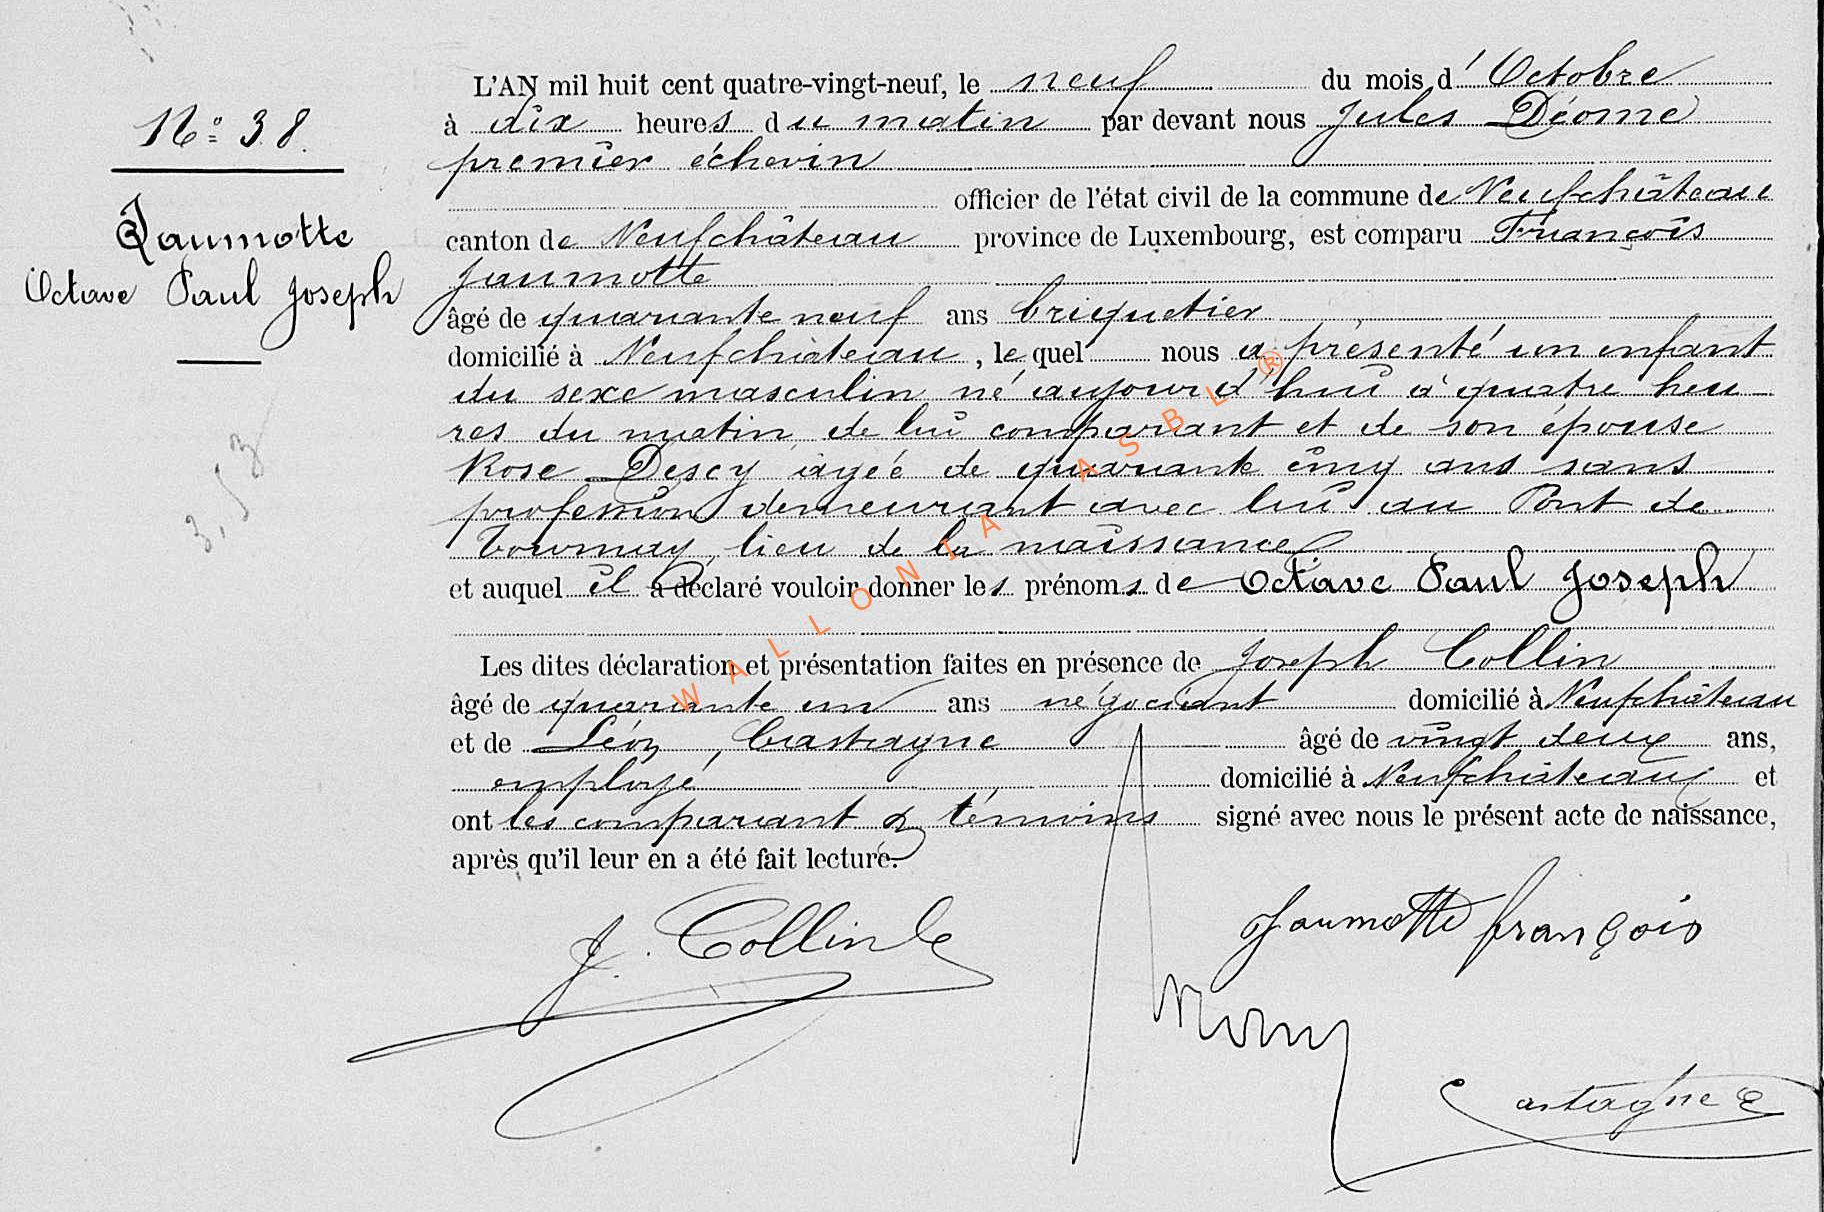 N° 38.
Jaumotte
Octave Paul Joseph
L'AN mil huit cent quatre-vingt-neuf, le neuf du mois d'Octobre
à dix heures du matin par devant nous Jules Déome
premier échevin
officier de l'état civil de la commune de Neufchâteau
canton de Neufchâteau province de Luxembourg, est comparu François
Jaumotte
âgé de quarante neuf ans briquetier
domicilié à Neufchâteau, lequel nous a présenté un enfant
du sexe masculin né aujourd'hui à quatre heu-
res du matin de lui comparant et de son épouse
Rose Descy âgée de quarante cinq ans sans
profession demeurant avec lui au Pont de
Tournay, lieu de la naissance
et auquel il a déclaré vouloir donner les prénoms de Octave Paul Joseph
Les dites déclaration et présentation faites en présence de Joseph Collin
âgé de quarante un ans négociant domicilié à Neufchâteau
et de Léon Castagne âgé de vingt deux ans,
employé domicilié à Neufchâteau et
ont les comparant & témoins signé avec nous le présent acte de naissance,
après qu'il leur en a été fait lecture.
J. Collin
Jaumotte françois
Castagne
3,53
WALLONIA ASBL ®